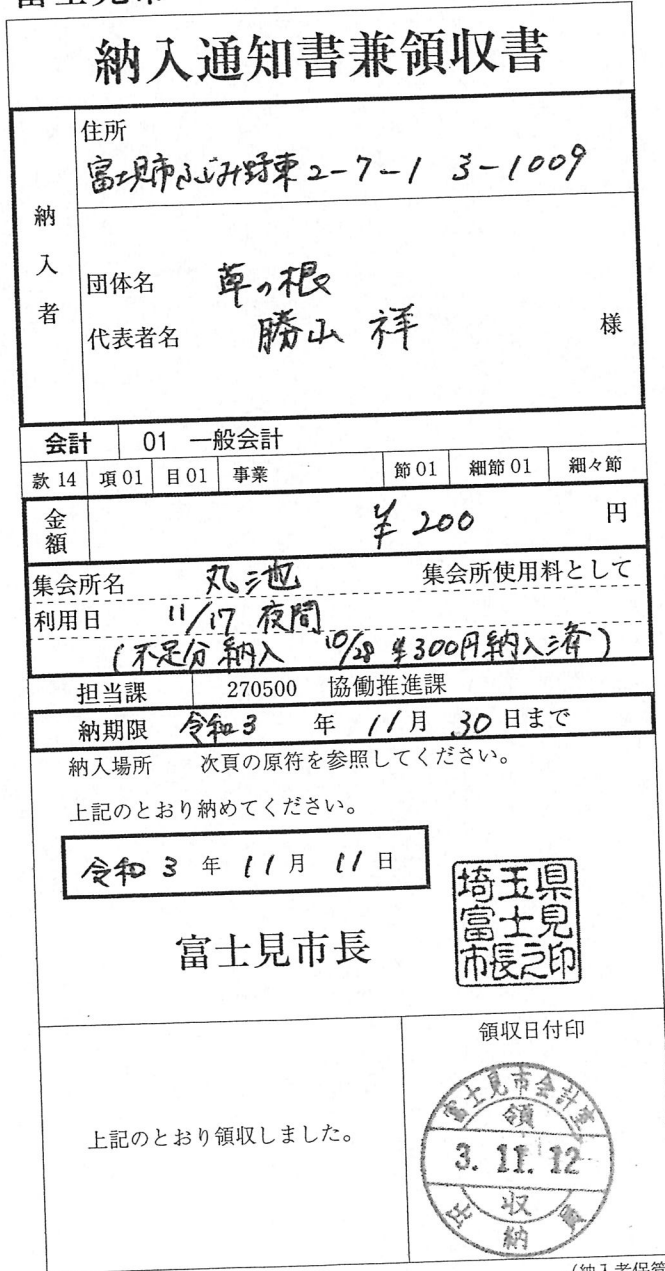 富士見市
納入通知書兼領収書
納入者
住所
富士見市ふじみ野東2-7-1 3-1009
団体名 草の根
代表者名 勝山 祥 様
会計 01 一般会計
款14 項01 目01 事業 節01 細節01 細々節
金額 ¥200 円
集会所名 丸池 集会所使用料として
利用日 11/17 夜間
(不足分納入 10/28 ¥300円納入済)
担当課 270500 協働推進課
納期限 令和3 年 11月 30日まで
納入場所 次頁の原符を参照してください。
上記のとおり納めてください。
令和3年11月11日
富士見市長
埼玉県富士見市長之印
領収日付印
上記のとおり領収しました。
富士見市会計室
領
3.11.12
収
出納員
(納入者保管